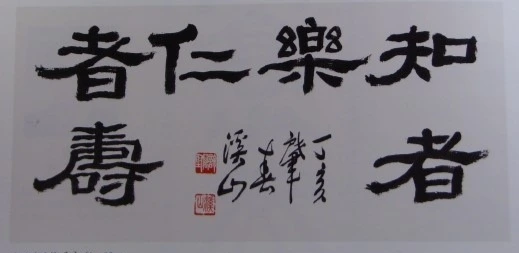 知者
樂
仁
者壽
丁亥
肇
春
溪山